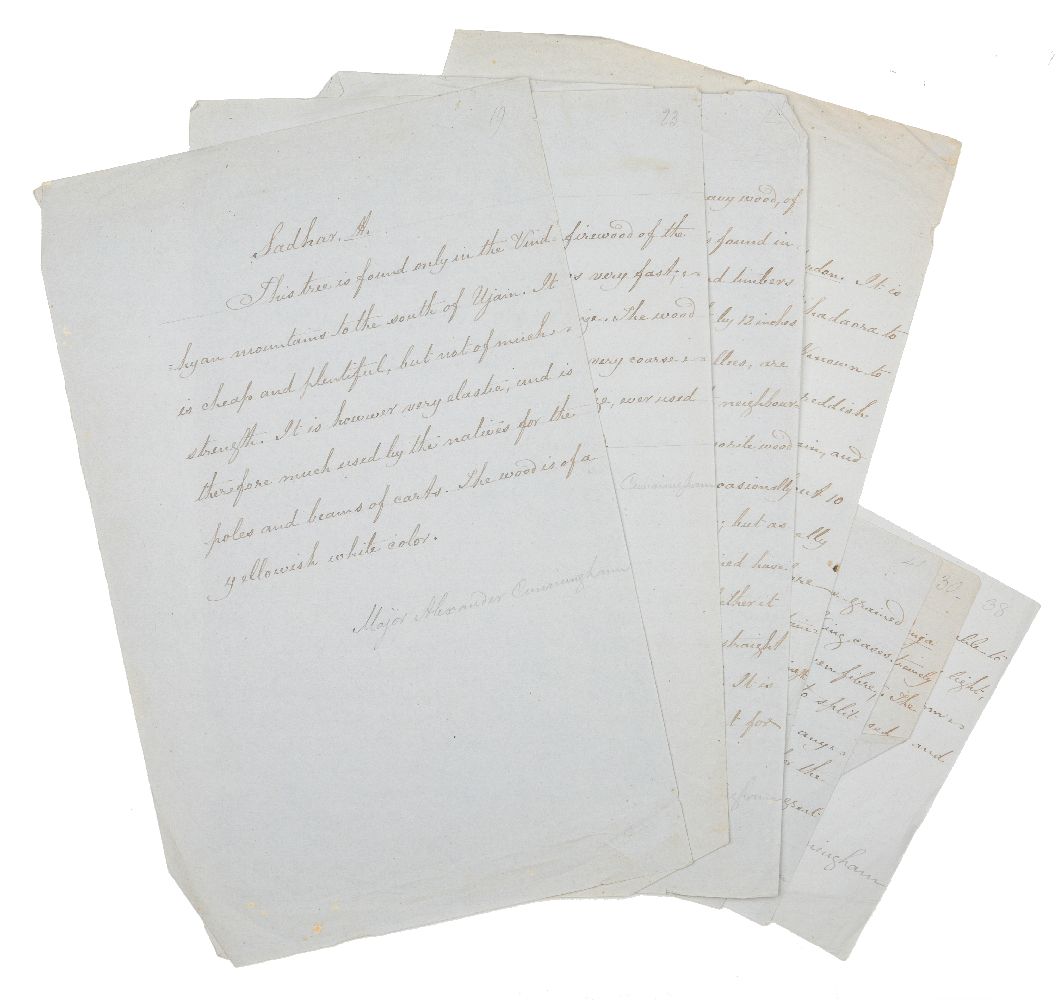 19
Sadhar, A.
This tree is found only in the Vind-
=hyan mountains to the south of Ujain. It
is cheap and plentiful, but not of much
strength. It is however very elastic, and is
therefore much used by the natives for the
poles and beams of carts. The wood is of a
yellowish white color.
Major Alexander Cunningham
23
firewood of the
very fast;
The wood
very coarse
wer used
Cunningham
avy wood, of
found in
timbers
by 12 inches
are
neighbour-
wood
casionally
but as
have
ether it
straight
It is
t for
It is
hadaora to
known to
reddish
in, and
10
lly
grained
fibre,
to split
the
great
30
The
38
ble to
light,
and
ningham